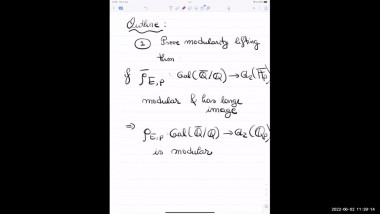 Outline:
① Prove modularity lifting
thm
if ρ̄_{E,p} : Gal(Q̄/Q) → GL₂(F̄_p)
modular & has large
image
⇒
ρ_{E,p} : Gal(Q̄/Q) → GL₂(Q̄_p)
is modular
2022-06-02 11:20:14